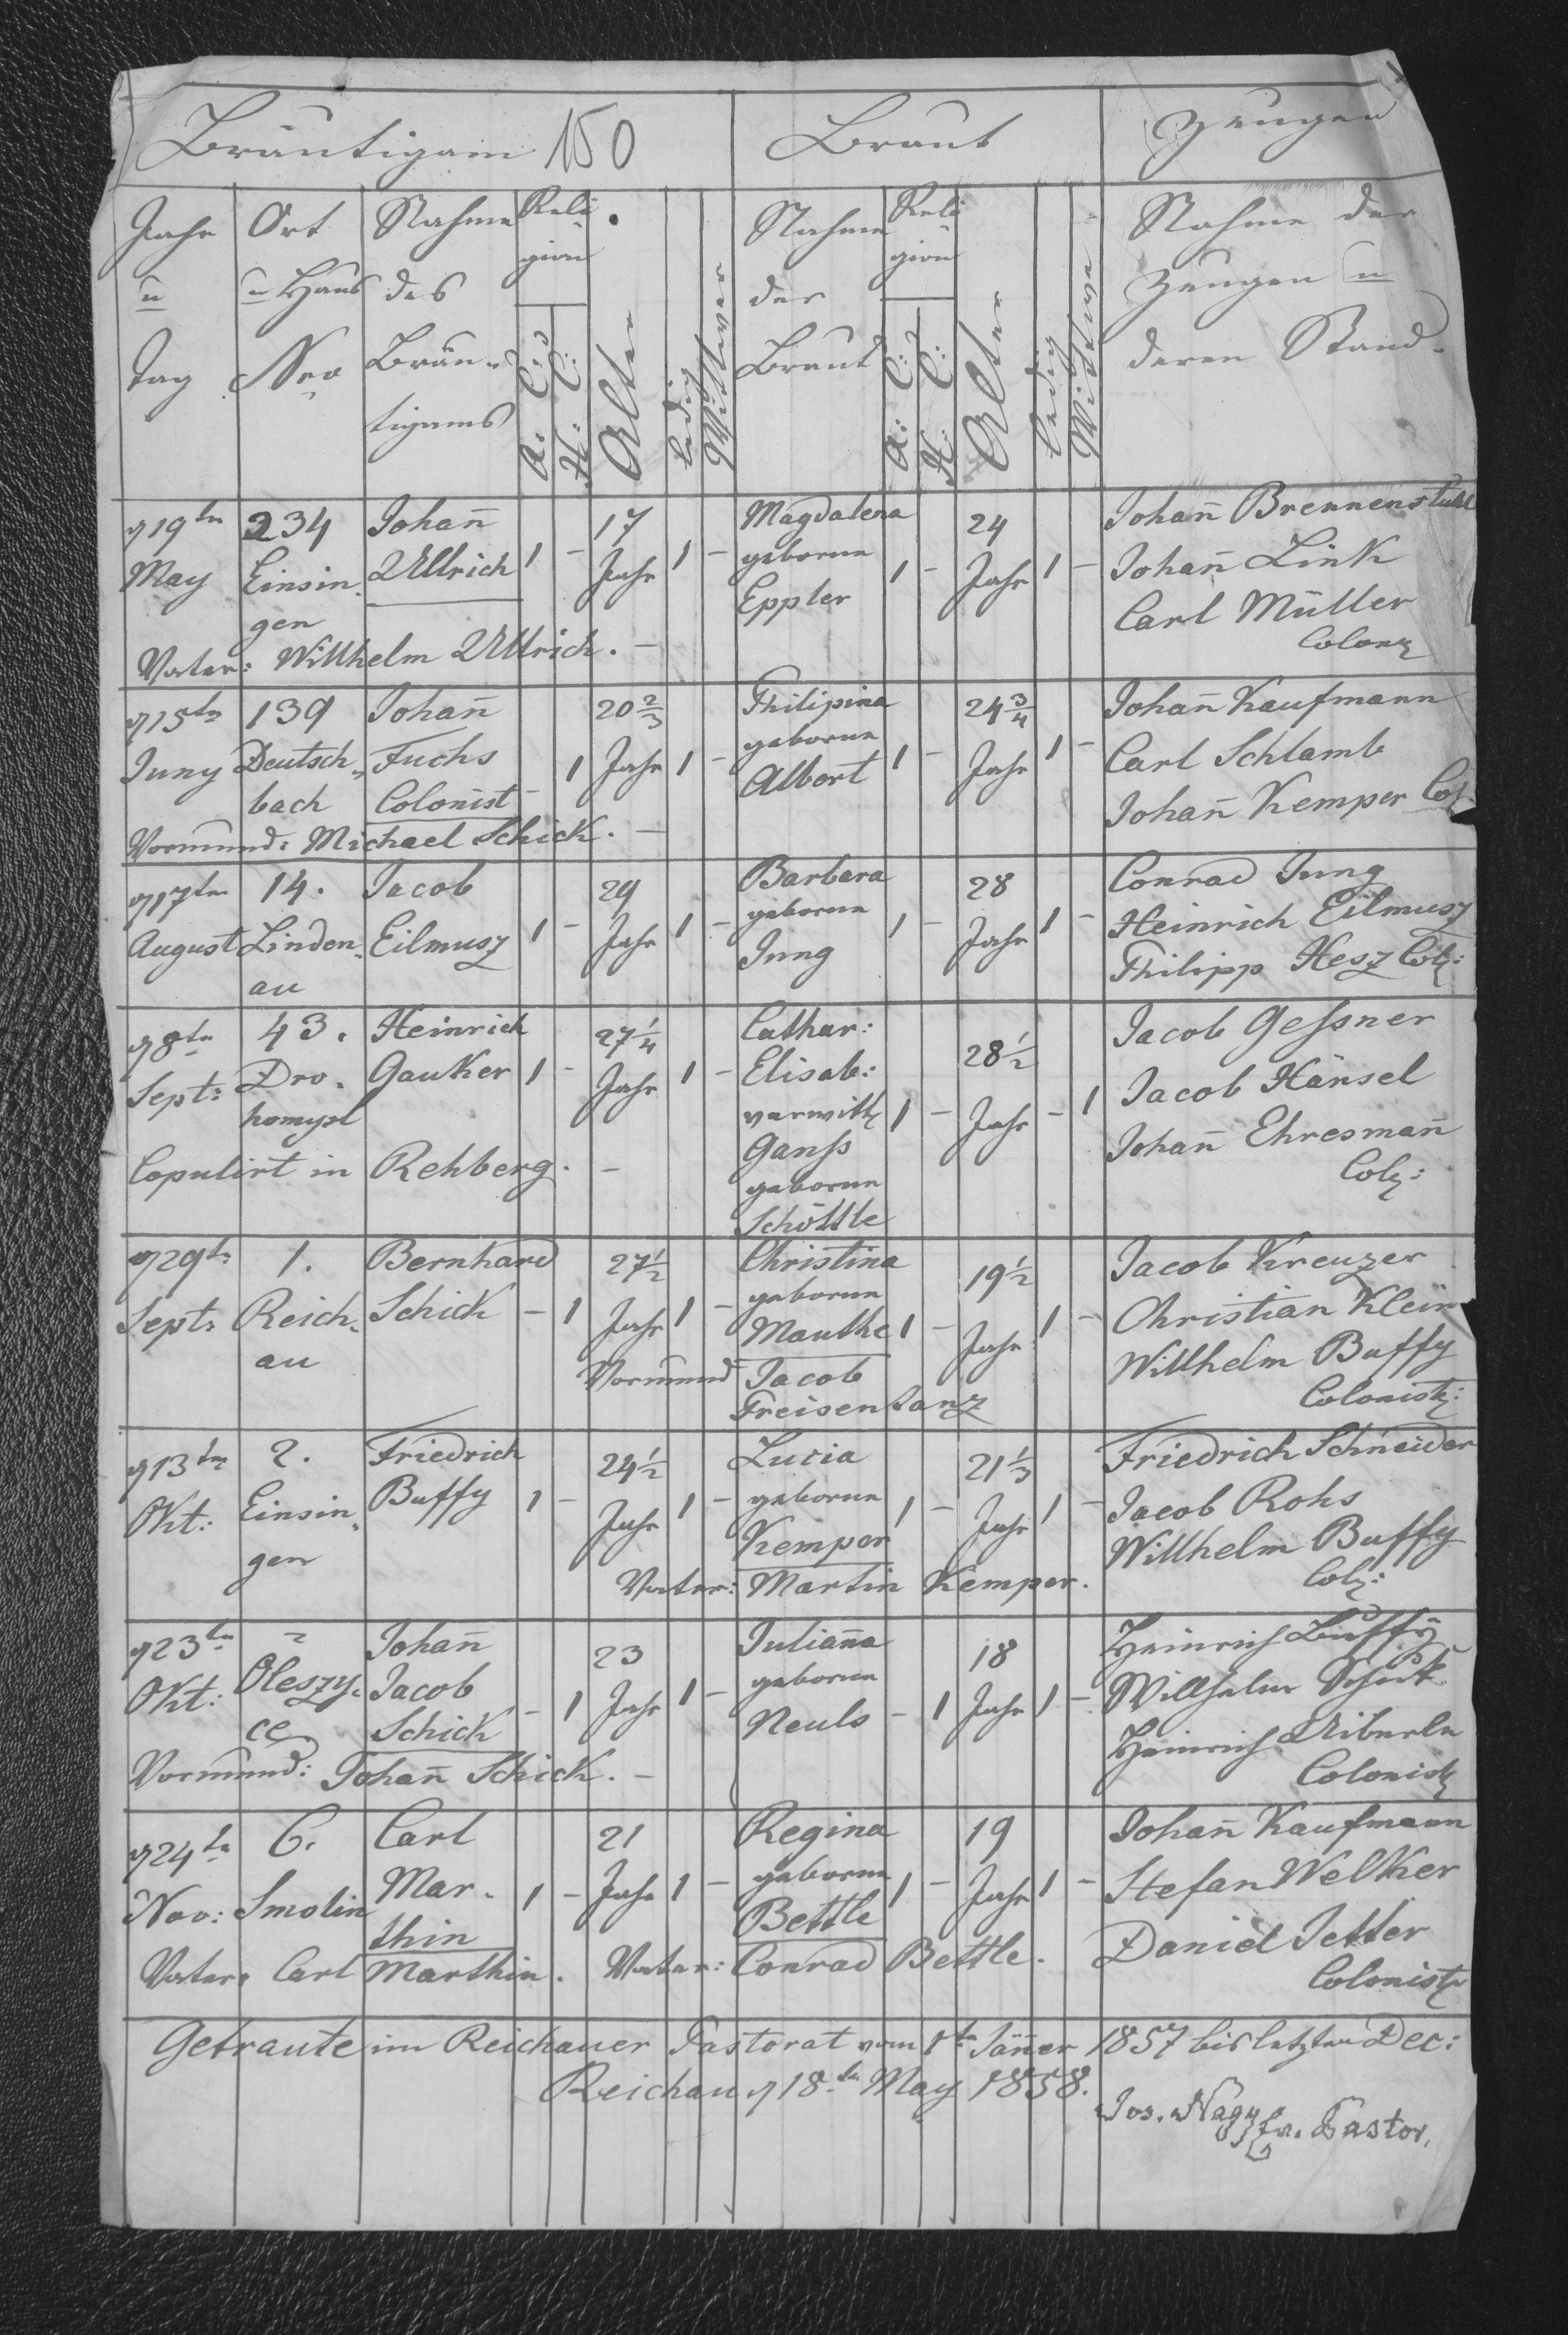 Bräutigam 150 Braut Zeugen
Jahr u Tag
Ort u Haus Nro
Nahme des Bräutigams
Religion A: C: H: C:
Alter
ledig
Wittwer
Nahme der Braut
Religion A: C: H: C:
Alter
ledig
Wittwe
Nahme der
Zeugen u
deren Stand
d 19tn May
234 Einsingen
Johañ Ullrich
1 -
17 Jahr
1 -
Magdalena geborne Eppler
1 -
24 Jahr
1 -
Johañ Brennenstuhl
Johañ Link
Carl Müller
Colonz
Vater: Willhelm Ullrich. -
d 15tn Juny
139 Deutschbach
Johañ Fuchs Colonist
1
20 2/3 Jahr
1 -
Philipina geborne Albert
1 -
24 3/4 Jahr
1 -
Johañ Kaufmann
Carl Schlamb
Johañ Kemper Col
Vormund: Michael Schick. -
d 17tn August
14. Lindenau
Jacob Eilmusz
1 -
29 Jahr
1 -
Barbara geborne Jung
1 -
28 Jahr
1 -
Conrad Jung
Heinrich Eilmusz
Philipp Hesz Colz:
d 8tn Sept:
43. Drohomysl
Heinrich Gauker
1 -
27 1/4 Jahr
1 -
Cathar: Elisab: verwitt Ganss geborne Schöttle
1 -
28 1/2 Jahr
- 1
Jacob Gessner
Jacob Hänsel
Johañ Ehresmañ
Colz:
Copulirt in Rehberg. -
d 29tn Sept:
1. Reichau
Bernhard Schick
- 1
27 1/2 Jahr
1 -
Christina geborne Mauthe
1 -
19 1/2 Jahr
1 -
Jacob Kreuzer
Christian Klein
Willhelm Buffy
Colonist:
Vormund Jacob Freisentanz
d 13tn Okt:
2. Einsingen
Friedrich Buffy
1 -
24 1/2 Jahr
1 -
Lucia geborne Kemper
1 -
21 1/3 Jahr
1 -
Friedrich Schneider
Jacob Rohs
Willhelm Buffy
Colz:
Vater: Martin Kemper.
d 23tn Okt:
Oleszyce
Johañ Jacob Schick
- 1
23 Jahr
1 -
Juliaña geborne Neuls
- 1
18 Jahr
1 -
Heinrich Buffy
Willhelm Schick
Heinrich
Colonist
Vormund: Johañ Schick. -
d 24tn Nov:
6. Smolin
Carl Marthin
1 -
21 Jahr
1 -
Regina geborne Bettle
1 -
19 Jahr
1 -
Johañ Kaufmann
Stefan Welker
Daniel Jetter
Colonist
Vater: Carl Marthin. Vater: Conrad Bettle.
Getraute im Reichauer Pastorat vom 1tn Jäñer 1857 bis letzten Dec:
Reichau d 18tn May 1858.
Jos. Nagy Pastor.